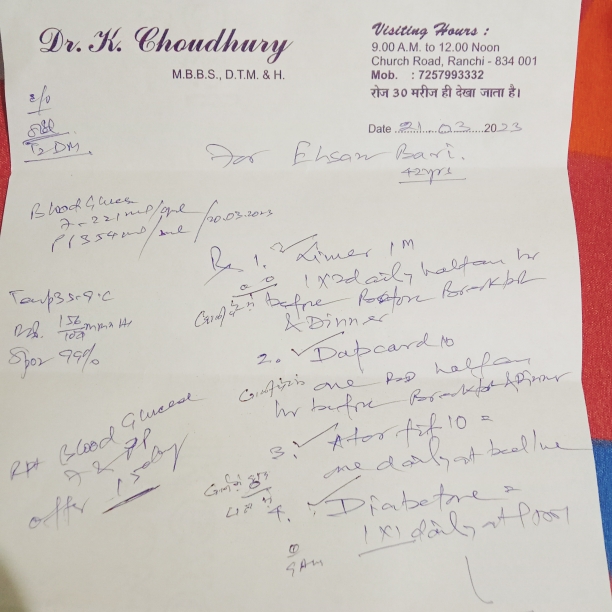 Dr. K. Choudhury
M.B.B.S., D.T.M. & H.
Visiting Hours :
9.00 A.M. to 12.00 Noon
Church Road, Ranchi - 834 001
Mob. : 7257993332
रोज 30 मरीज ही देखा जाता है।
Date 21.03.2023
c/o
T2DM
For Ehsan Bari.
42yrs
Blood Gluc
F- 221 mg/
PP 354 mg/ /20.03.2023
Temp 35.9°C
B.P. 156/109 mm Hr
Spo2 99%
Rx 1. Limer 1 M
1x2 daily half an hr
before Before Breakfast
& Dinner
2. Dapcard 10
one half an
hr before Breakfast & Dinner
3. Ator 10 =
one daily at bed time
4. Diabetone =
1x1 daily at 
9AM
Rpt Blood Glucose
F & PP
after 15 day